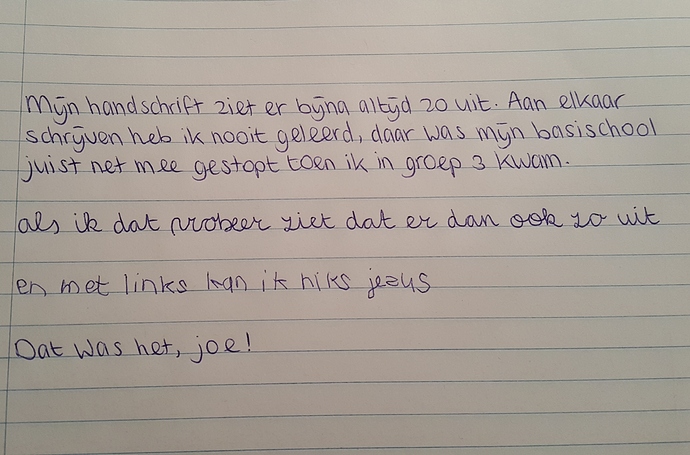 Mijn handschrift ziet er bijna altijd zo uit. Aan elkaar
schrijven heb ik nooit geleerd, daar was mijn basischool
juist net mee gestopt toen ik in groep 3 kwam.
als ik dat probeer ziet dat er dan ook zo uit
en met links kan ik niks jezus
Dat was het, joe!